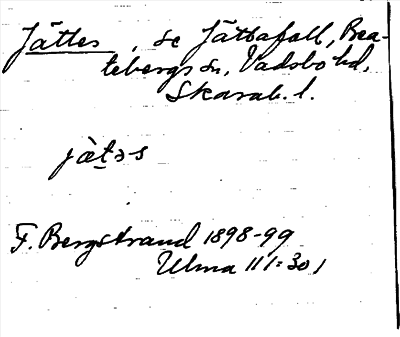 Jättes, se Jättafall, Brea-
tebergs sn, Vadsbo hd,
Skarab. l.
jæ̀təs
F. Bergstrand 1898-99
Ulma 111:301